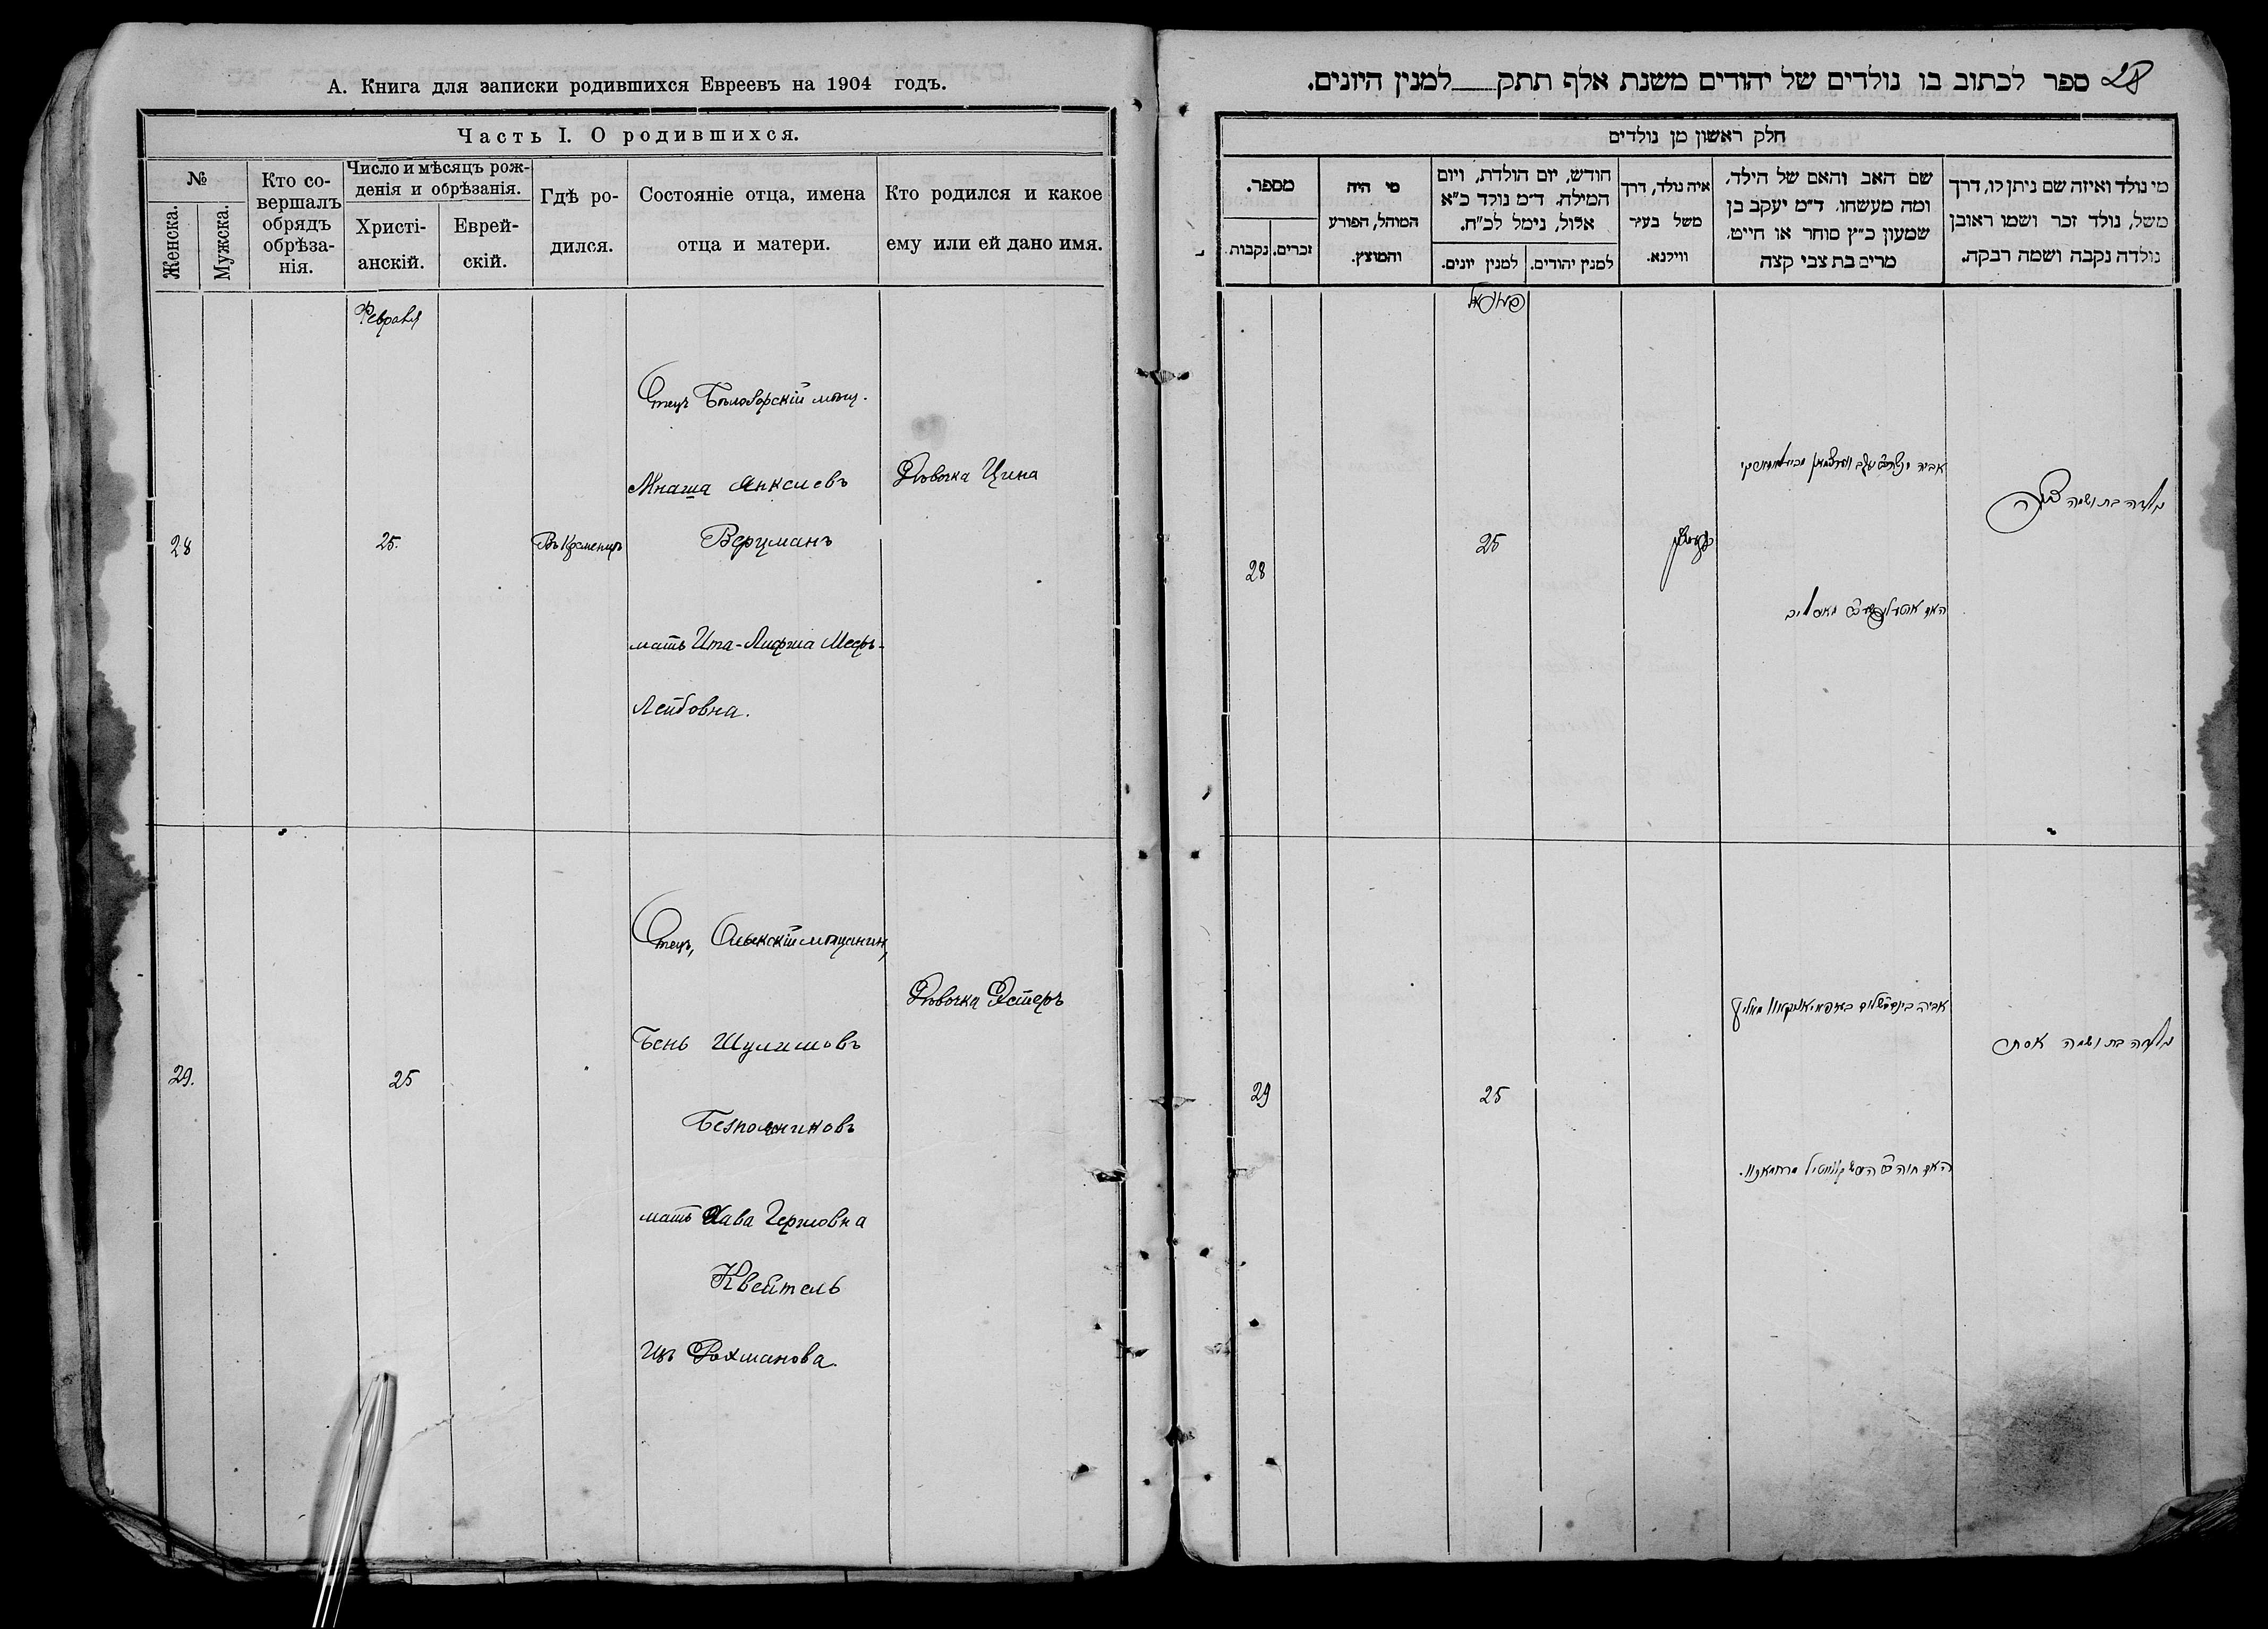 А. Книга для записки родившихся Евреевъ на 1904 годъ.
Часть I. О родившихся.
№
Женска.
Мужска.
Кто со-
вершалъ
обрядъ
обрѣза-
нія.
Число и мѣсяцъ рож-
денія и обрѣзанія.
Христі-
анскій.
Еврей-
скій.
Гдѣ ро-
дился.
Состояніе отца, имена
отца и матери.
Кто родился и какое
ему или ей дано имя.
Февраля
28
25.
Въ Кременцѣ
Отецъ мѣщ.
Мнаша Янкелевъ
Верцманъ
мать Ита-Лифша Мееръ-
Лейбовна.
Дѣвочка Цина
29.
25
Отецъ, Олыкскій мѣщанин,
Бень Шулимовъ
Безпояниковъ
мать Хава Гершовна
Квейтель
изъ Рохманова.
Дѣвочка Эстеръ
28
ספר לכתוב בו נולדים של יהודים משנת אלף תתק למנין היונים.
חלק ראשון מן נולדים
מי נולד ואיזה שם ניתן לו, דרך
משל, נולד זכר ושמו ראובן
נולדה נקבה ושמה רבקה.
שם האב והאם של הילד,
ומה מעשהו, ד״מ יעקב בן
שמעון כ״ץ סוחר או חייט,
מרים בת צבי קצה
איה נולד, דרך
משל בעיר
ווילנא.
חודש, יום הולדת, ויום
המילה, ד״מ נולד כ״א
אלול, נימל לכ״ח.
למנין יהודים.
למנין יונים.
מי היה
המוהל, הפורע
והמוצץ.
מספר.
זכרים.
נקבות
פעווראל
נולדה בת ושמה
אביה
האם
25
28
נולדה בת ושמה אסתר
אביה
האם חוה
25
29